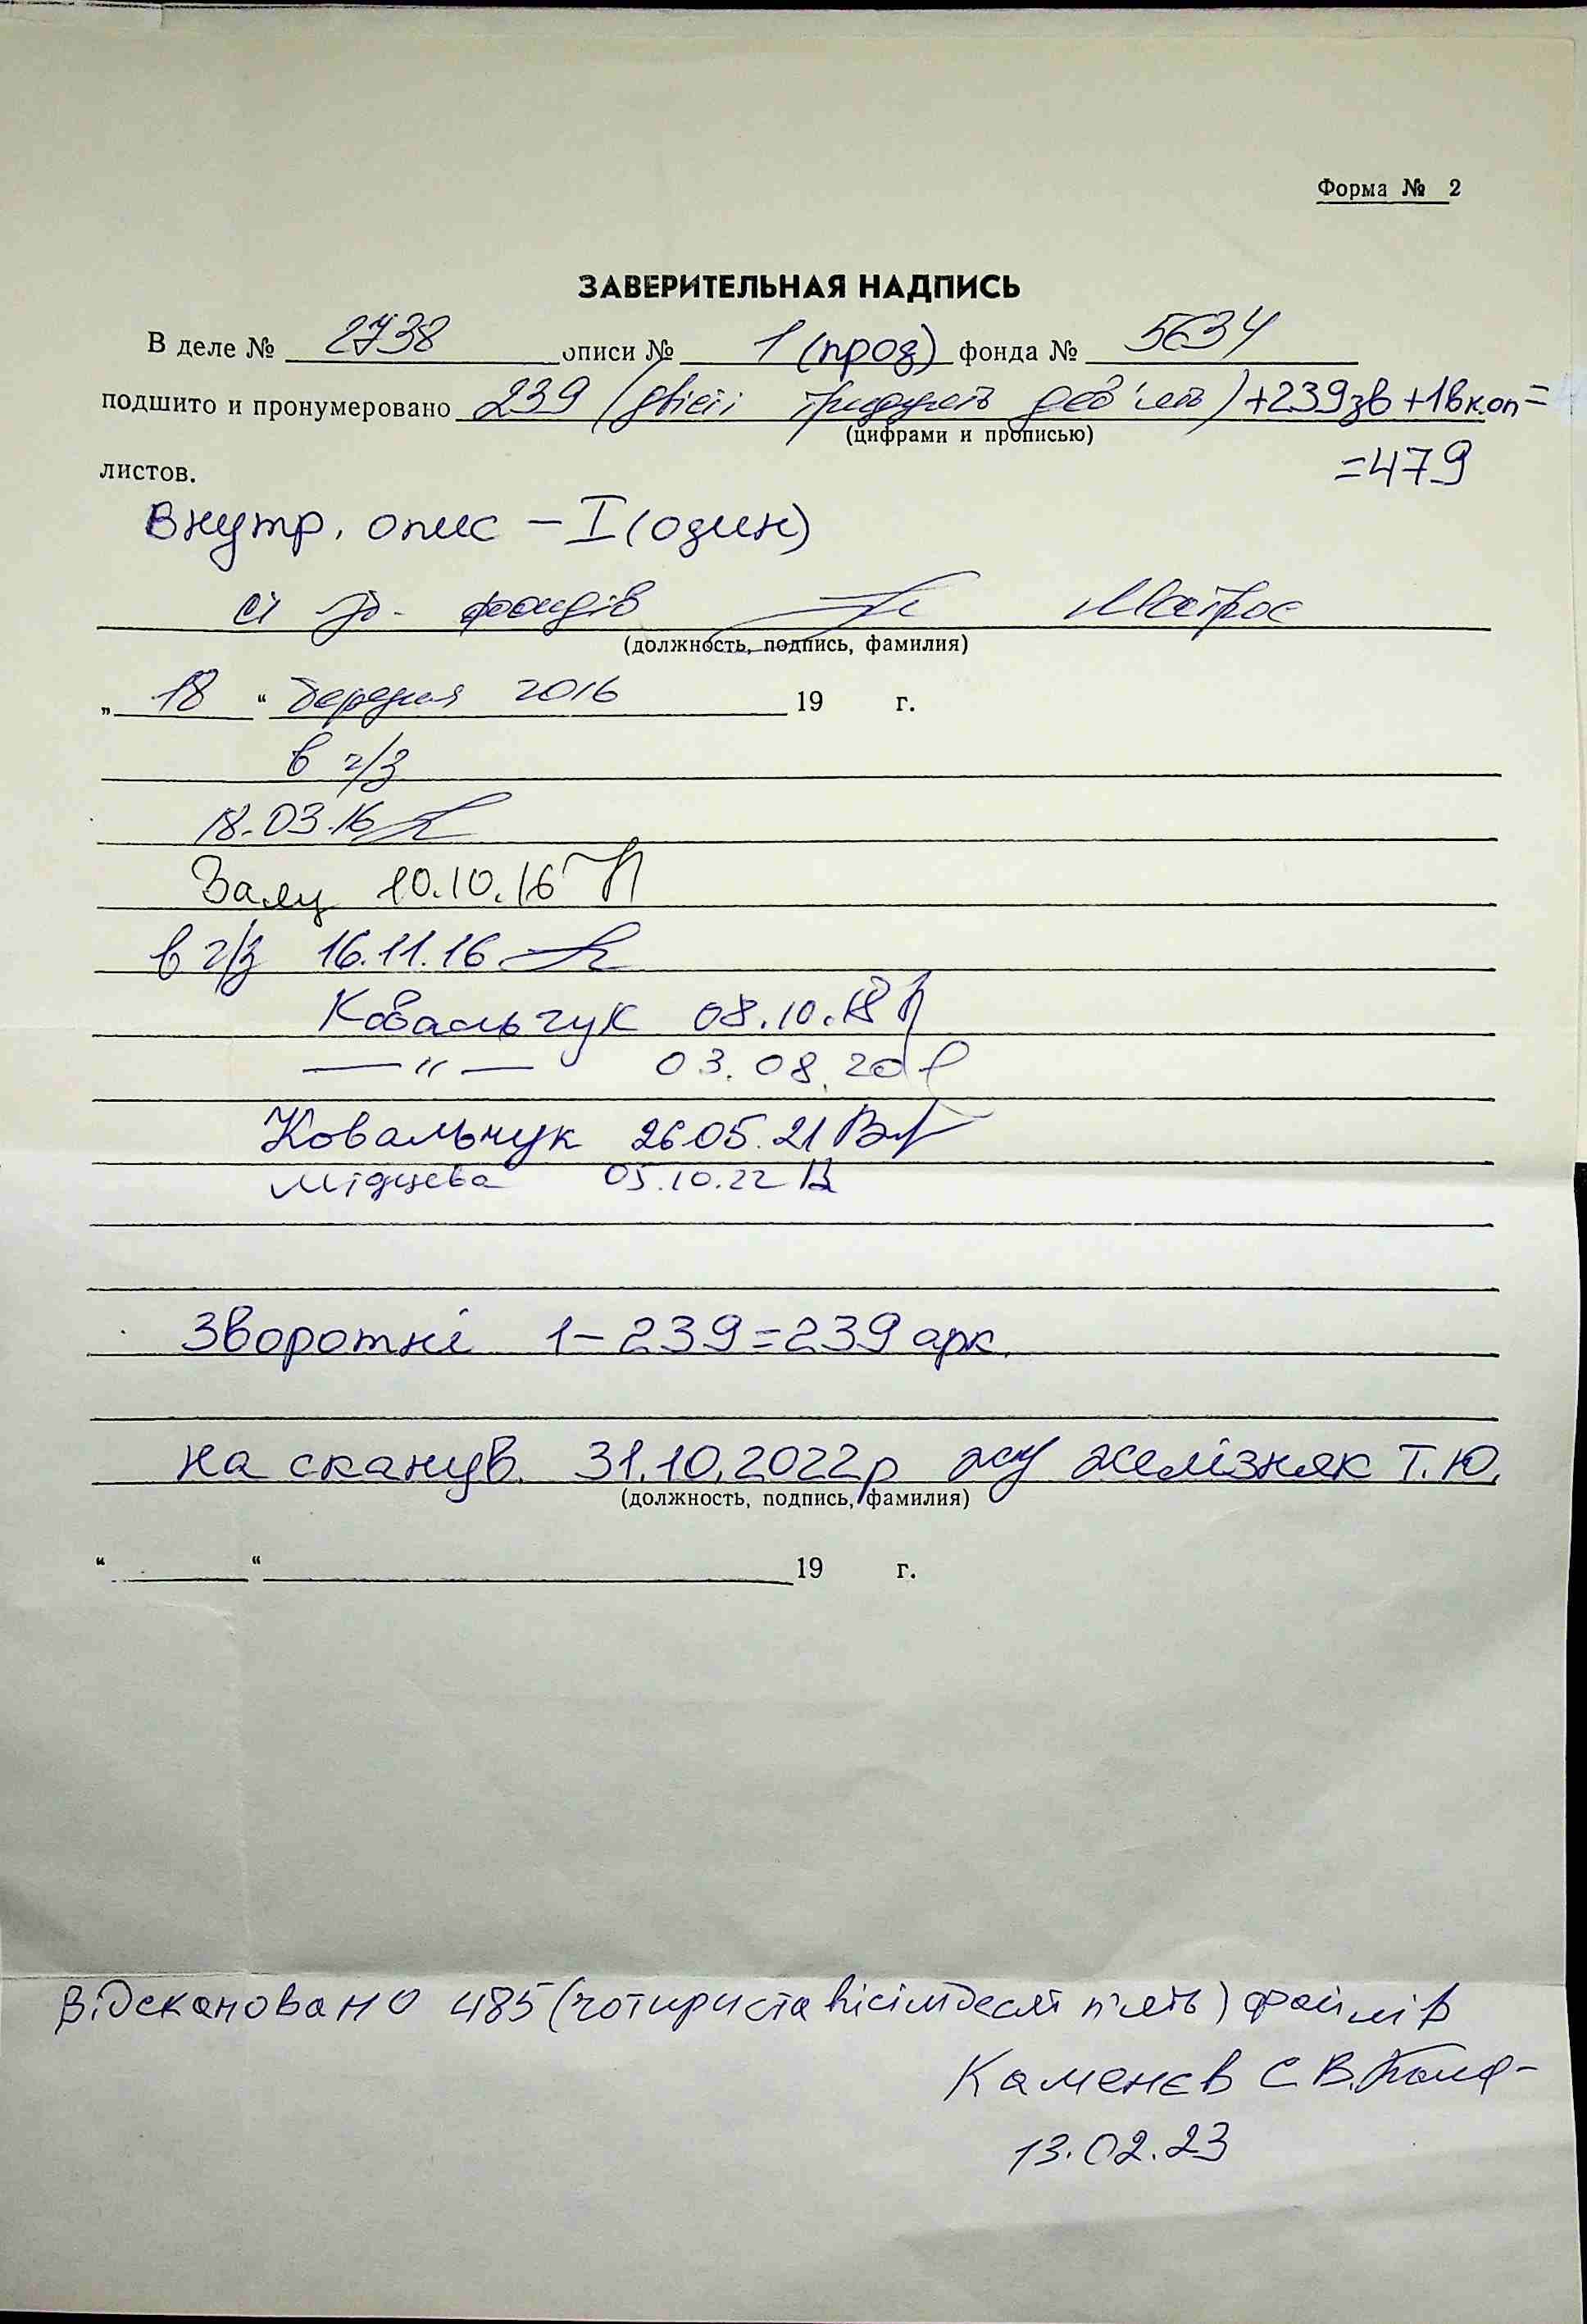 Форма № 2
ЗАВЕРИТЕЛЬНАЯ НАДПИСЬ
В деле № 2738 описи № 1 (прод) фонда № 5634
подшито и пронумеровано 239 (двісті тридцять дев'ять) +239зв +1вк.оп=
(цифрами и прописью)
=479
листов.
Внутр. опис – I (один)
фондів Матрос
(должность, подпись, фамилия)
„ 18 “ березня 2016 19 г.
в ч/з
18.03.16
10.10.16
в ч/з 16.11.16
Ковальчук 08.10.18
— " — 03.08.20
Ковальчук 26.05.21
05.10.22
Зворотні 1–239=239 арк.
на сканув. 31.10.2022р Желізняк Т.Ю.
(должность, подпись, фамилия)
“ “ 19 г.
Відскановано 485 (чотириста вісімдесят п'ять) файлів
Каменєв С.В.
13.02.23